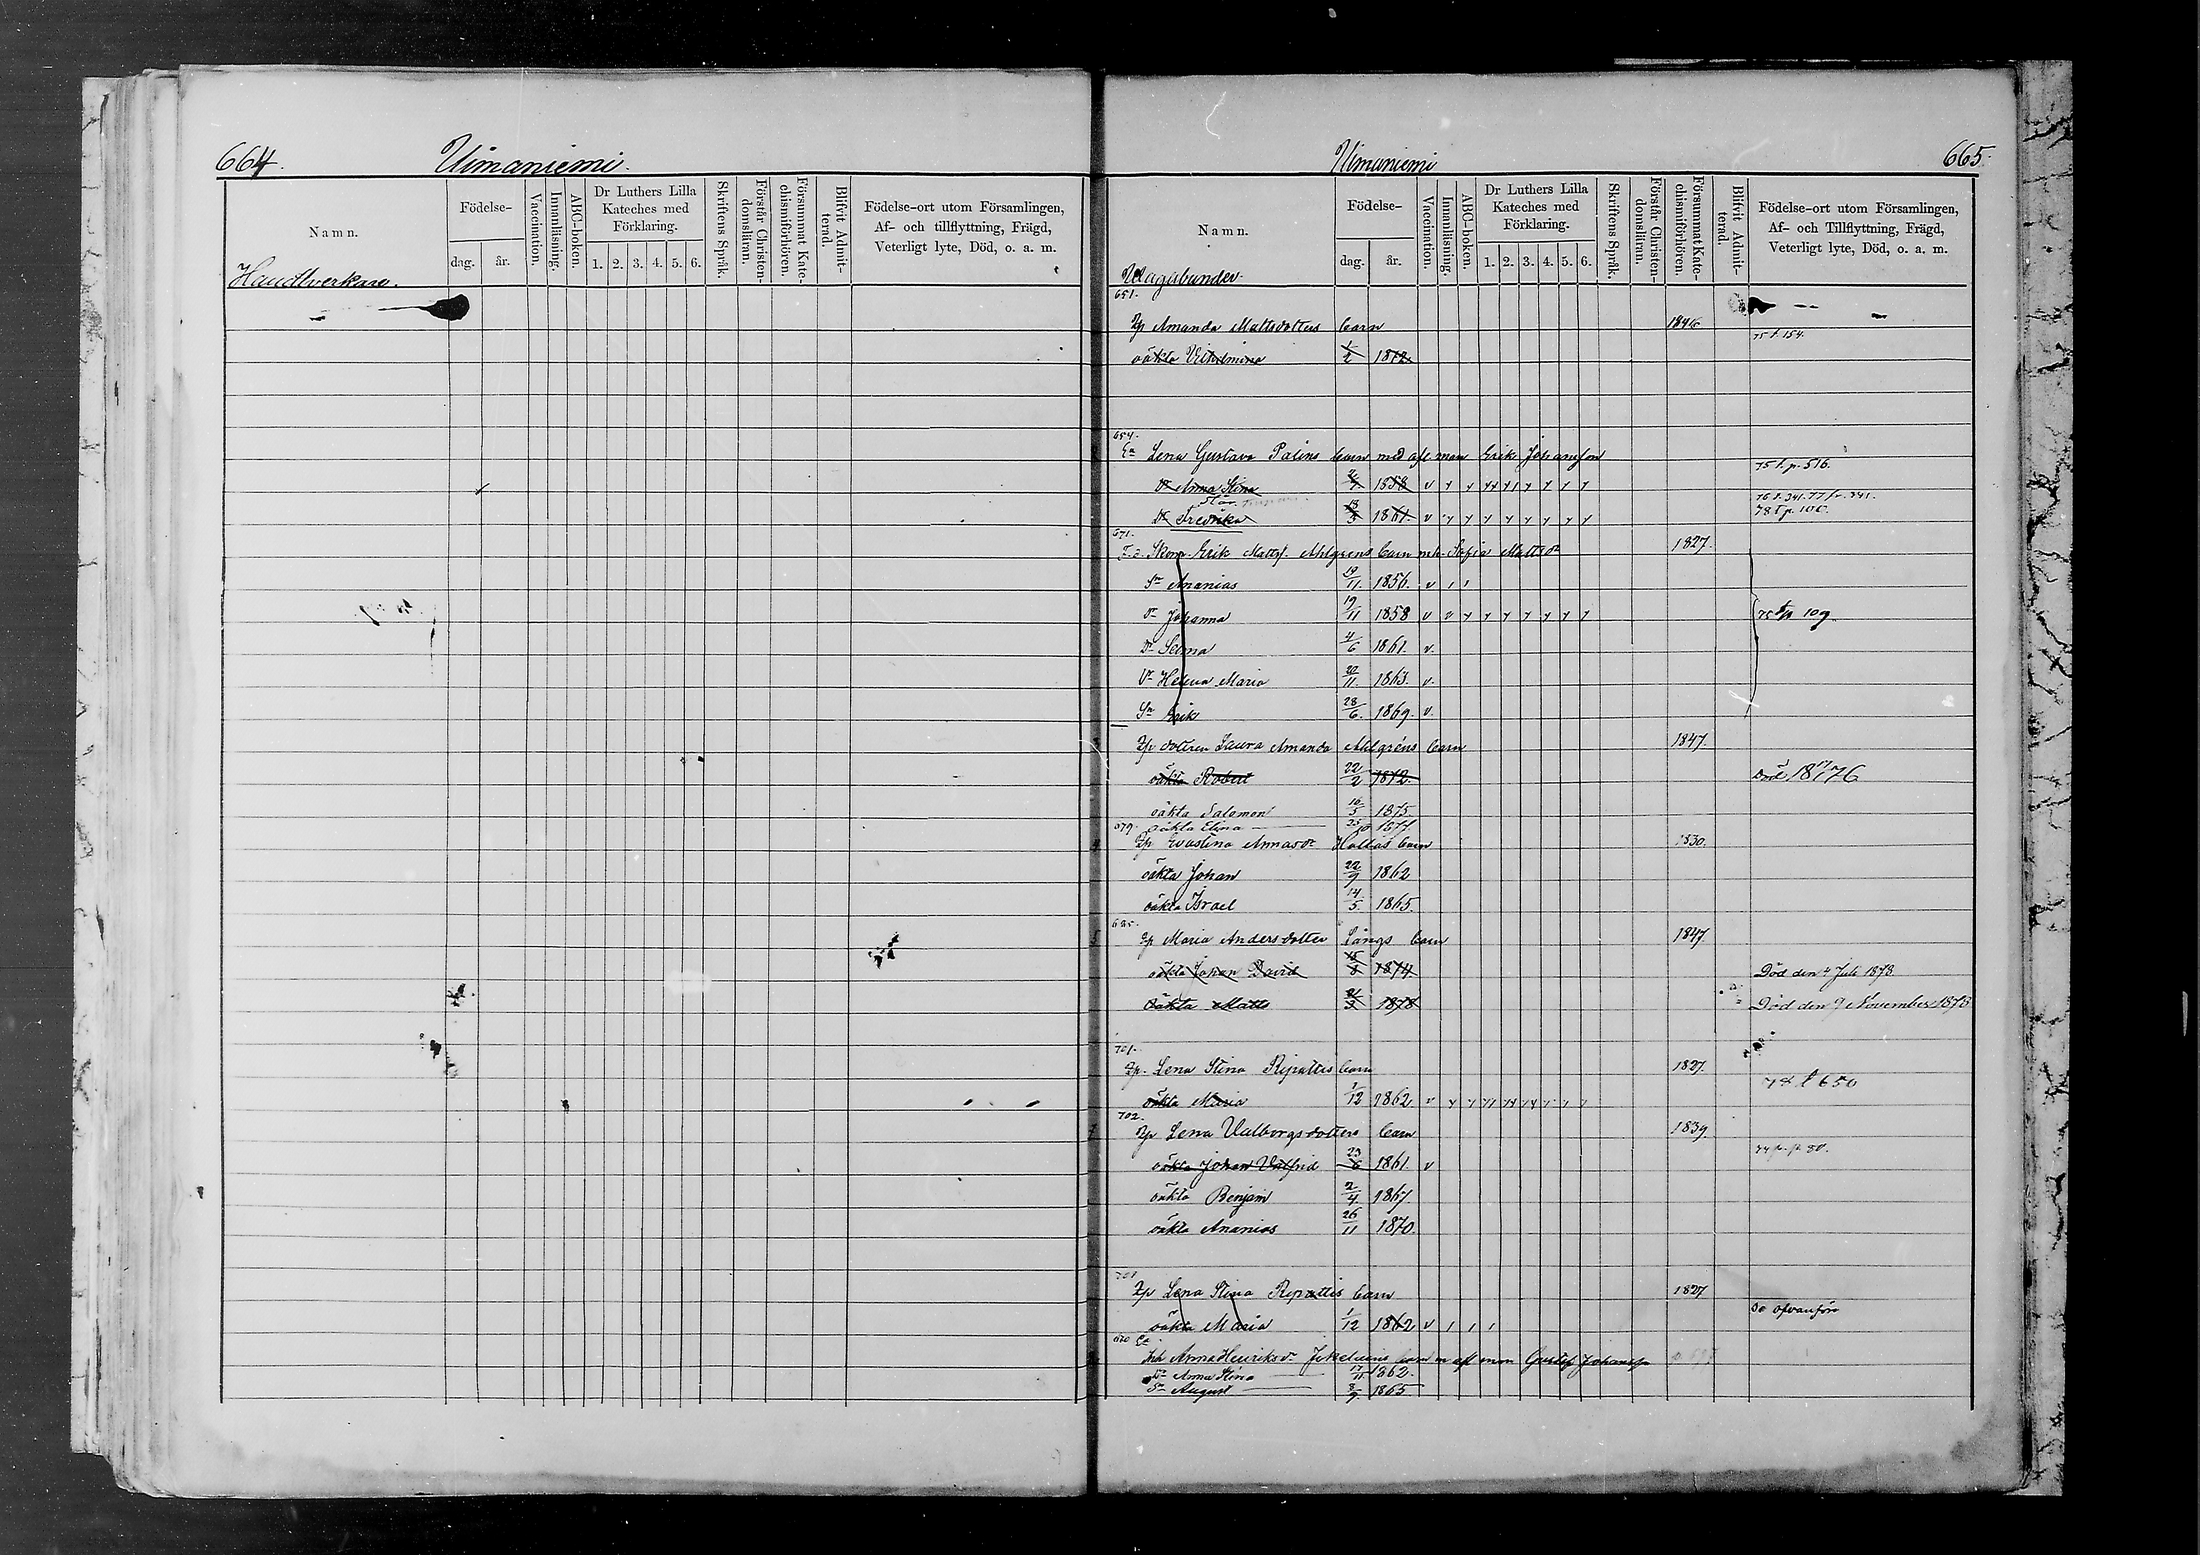 664.
Uimaniemi.
Namn.
Födelse-
dag.
år.
Vaccination.
Innanläsning.
ABC-boken.
Dr Luthers Lilla
Kateches med
Förklaring.
1. 2. 3. 4. 5. 6.
Skriftens Språk.
Förstår Christen-
domsläran.
Försummat Kate-
chismiförhören.
Blifvit Admit-
terad.
Födelse-ort utom Församlingen,
Af- och tillflyttning, Frägd,
Veterligt lyte, Död, o. a. m.
Handtverkare.
Uimaniemi
665.
Namn.
Födelse-
dag.
år.
Vaccination.
Innanläsning.
ABC-boken.
Dr Luthers Lilla
Kateches med
Förklaring.
1. 2. 3. 4. 5. 6.
Skriftens Språk.
Förstår Christen-
domsläran.
Försummat Kate-
chismiförhören.
Blifvit Admit-
terad.
Födelse-ort utom Församlingen,
Af- och Tillflyttning, Frägd,
Veterligt lyte, Död, o. a. m.
651.
Zp Amanda Mattsdotters barn 1846
oäkta Vilhelmina 1/2 1872. 75 t. 154.
654.
Ea Lena Gustava Palins barn med afl. man Erik Johansson
Dr Anna Stina 1858 v 75 t. p. 516.
Dr Fredrika 1861. v 76 t. 341. 77 fr. 341.
78 t p. 100.
671.
F.d. Skom. Erik Matts. Ahlgrens barn m h. Sofia Mattsdr 1827.
Sn Ananias 19/11. 1856. v
Dr Johanna 19/11 1858 v 75 t p 109
Dr Selma 4/6 1861. v.
Dr Helena Maria 20/11. 1863. v.
Sn Erik 28/6. 1869. v.
Zp dottren Laura Amanda Ahlgréns barn 1847.
oäkta Robert 22/2 1872. död 18 17/1 76
oäkta Salomon 16/5 1875
oäkta Elina 1877.
679.
Zp Evastina Annasdr Hallas barn 1830.
oäkta Johan 22/9 1862
oäkta Israel 14/5. 1865.
685.
Zp Maria Andersdotter Långs barn 1847.
oäkta Johan David 1874 Död den 4 Juli 1878
oäkta Matts 1878 Död den 9 November 1878
701.
Zp. Lena Stina Ripattis barn 1827.
oäkta Maria 1/12 1862 v 78 t 650
702.
Zp Lena Valborgsdotters barn 1839.
oäkta Johan Valfrid 23/6 1861. v
oäkta Benjam 2/4 1867
oäkta Ananias 26/11 1870.
701
Zp Lena Stina Ripattis barn 1827
oäkta Maria 1/12 1862 v se ofvanföre
Ea
Inh Anna Henriksdr barn m afl man Gustaf Johansson
Dr Anna Stina 17/11 1862.
Sn August 8/9 1865